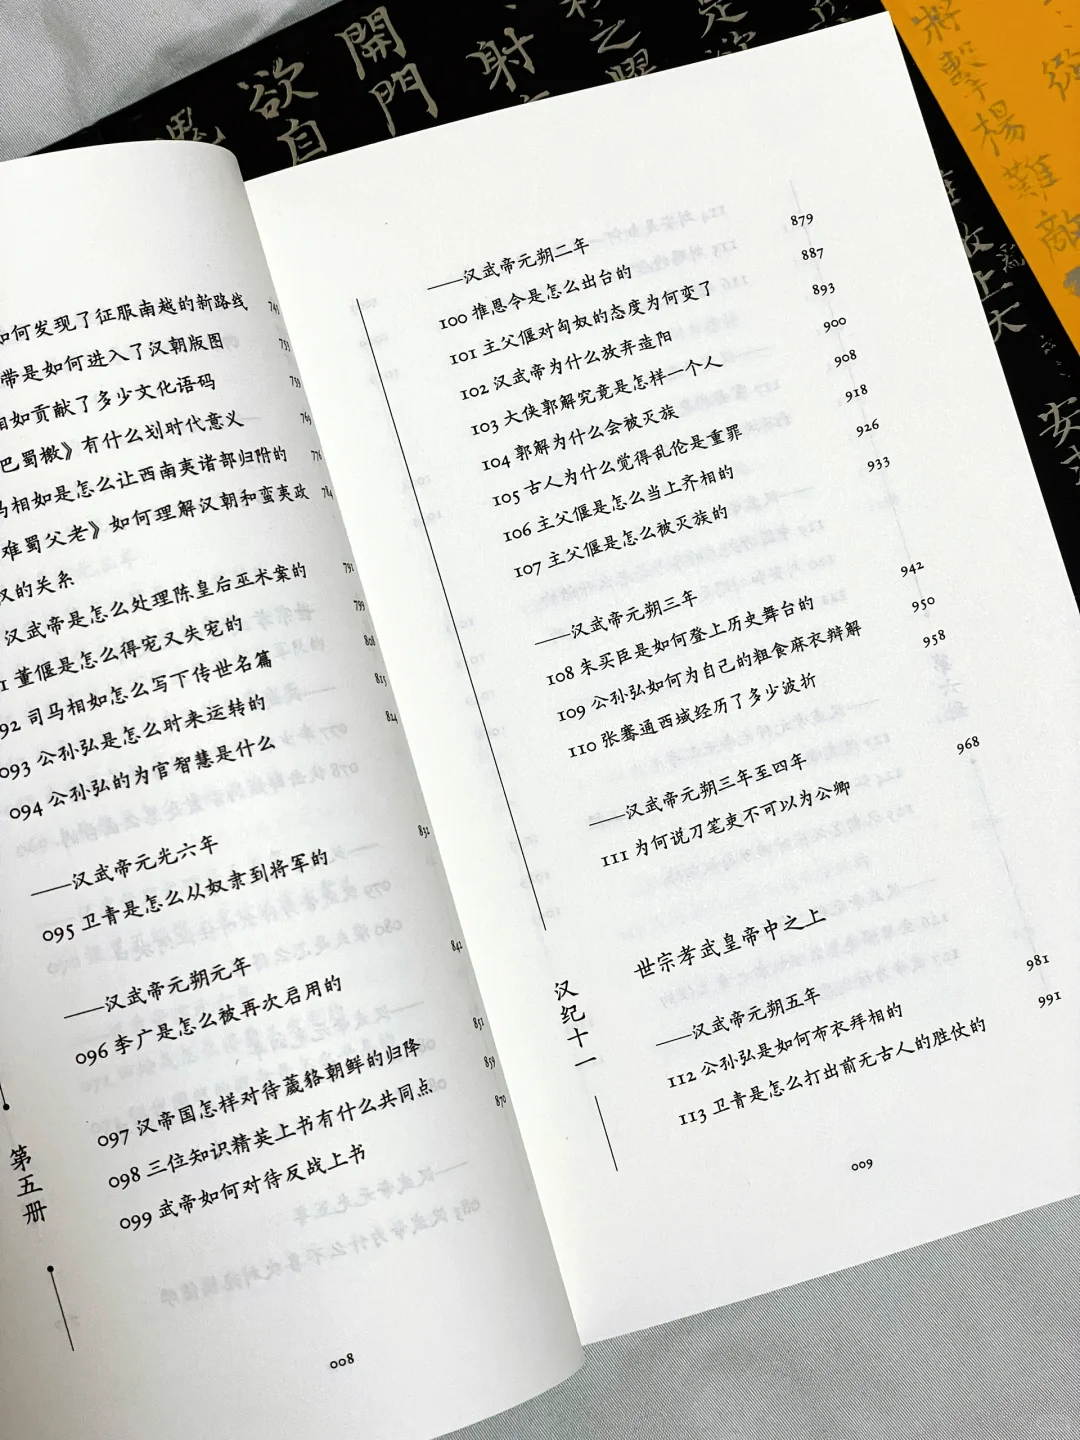 如何发现了征服南越的新路线 745
带是如何进入了汉朝版图 753
相如贡献了多少文化语码 759
巴蜀檄》有什么划时代意义 765
马相如是怎么让西南夷诸部归附的 776
难蜀父老》如何理解汉朝和蛮夷政 784
汉的关系
汉武帝是怎么处理陈皇后巫术案的 791
1 董偃是怎么得宠又失宠的 799
92 司马相如怎么写下传世名篇 808
093 公孙弘是怎么时来运转的 815
094 公孙弘的为官智慧是什么 824
——汉武帝元光六年
095 卫青是怎么从奴隶到将军的 832
——汉武帝元朔元年
096 李广是怎么被再次启用的 842
097 汉帝国怎样对待薉貉朝鲜的归降 851
098 三位知识精英上书有什么共同点 859
099 武帝如何对待反战上书 870
第五册
008
——汉武帝元朔二年
100 推恩令是怎么出台的 879
101 主父偃对匈奴的态度为何变了 887
102 汉武帝为什么放弃造阳 893
103 大侠郭解究竟是怎样一个人 900
104 郭解为什么会被灭族 908
105 古人为什么觉得乱伦是重罪 918
106 主父偃是怎么当上齐相的 926
107 主父偃是怎么被灭族的 933
——汉武帝元朔三年
108 朱买臣是如何登上历史舞台的 942
109 公孙弘如何为自己的粗食麻衣辩解 950
110 张骞通西域经历了多少波折 958
——汉武帝元朔三年至四年
111 为何说刀笔吏不可以为公卿 968
汉纪十一
世宗孝武皇帝中之上
——汉武帝元朔五年
112 公孙弘是如何布衣拜相的 981
113 卫青是怎么打出前无古人的胜仗的 991
009
開門
欲自
射
之
定
將
楊難敵
上大
安